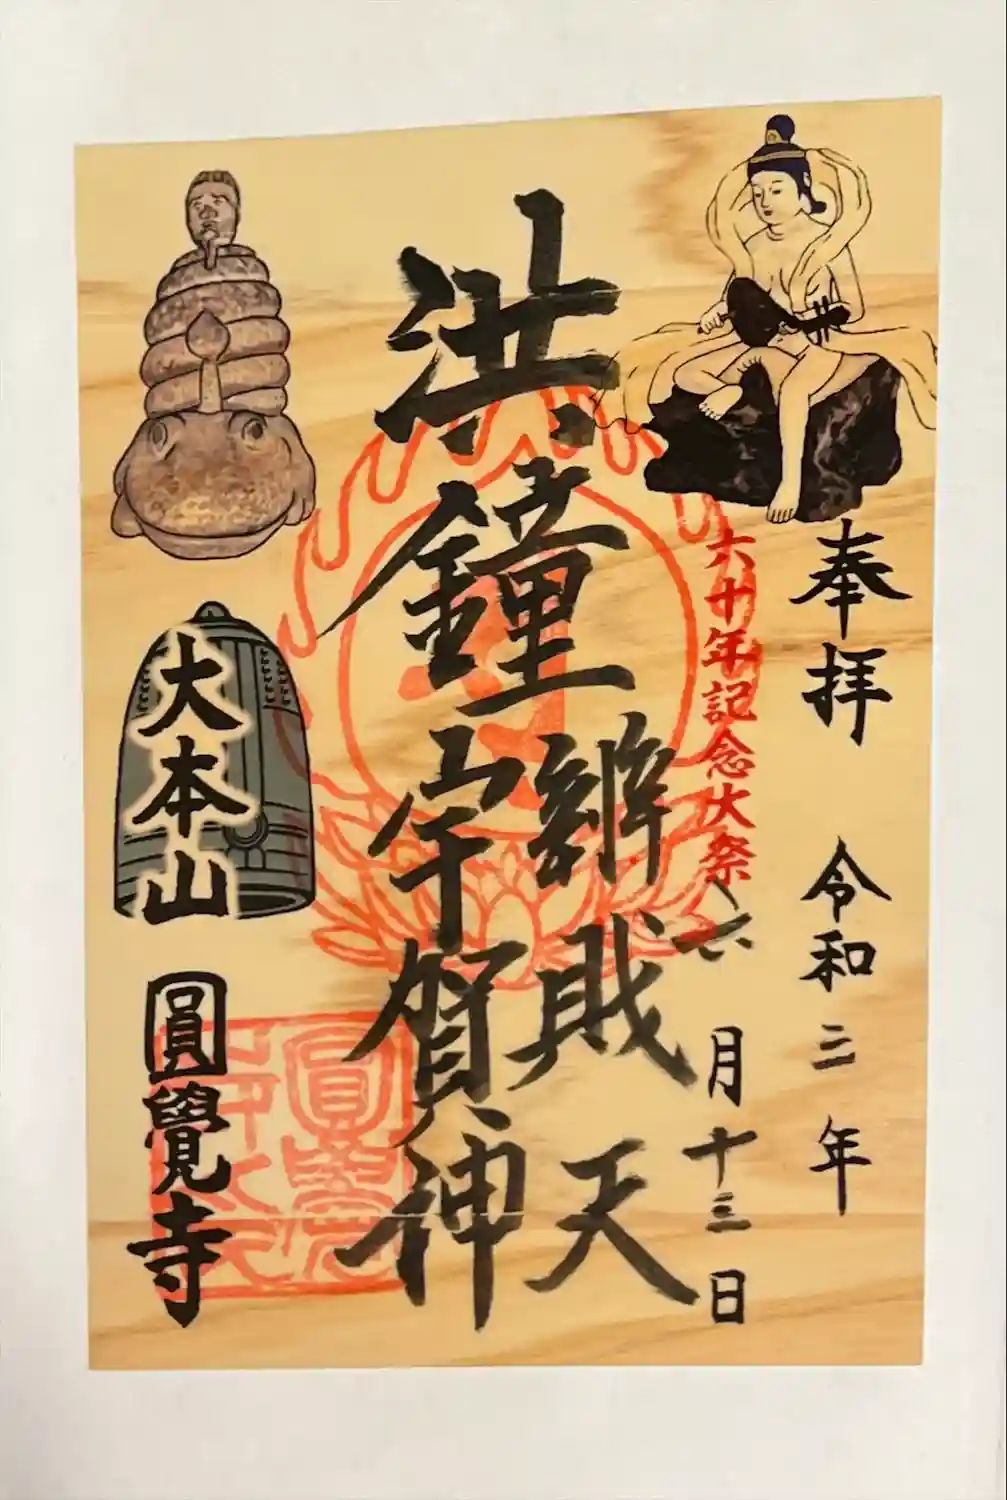 奉拝
令和三年
六月十三日
六十年記念大祭
洪鐘
辨財天
宇賀神
大本山
圓覺寺